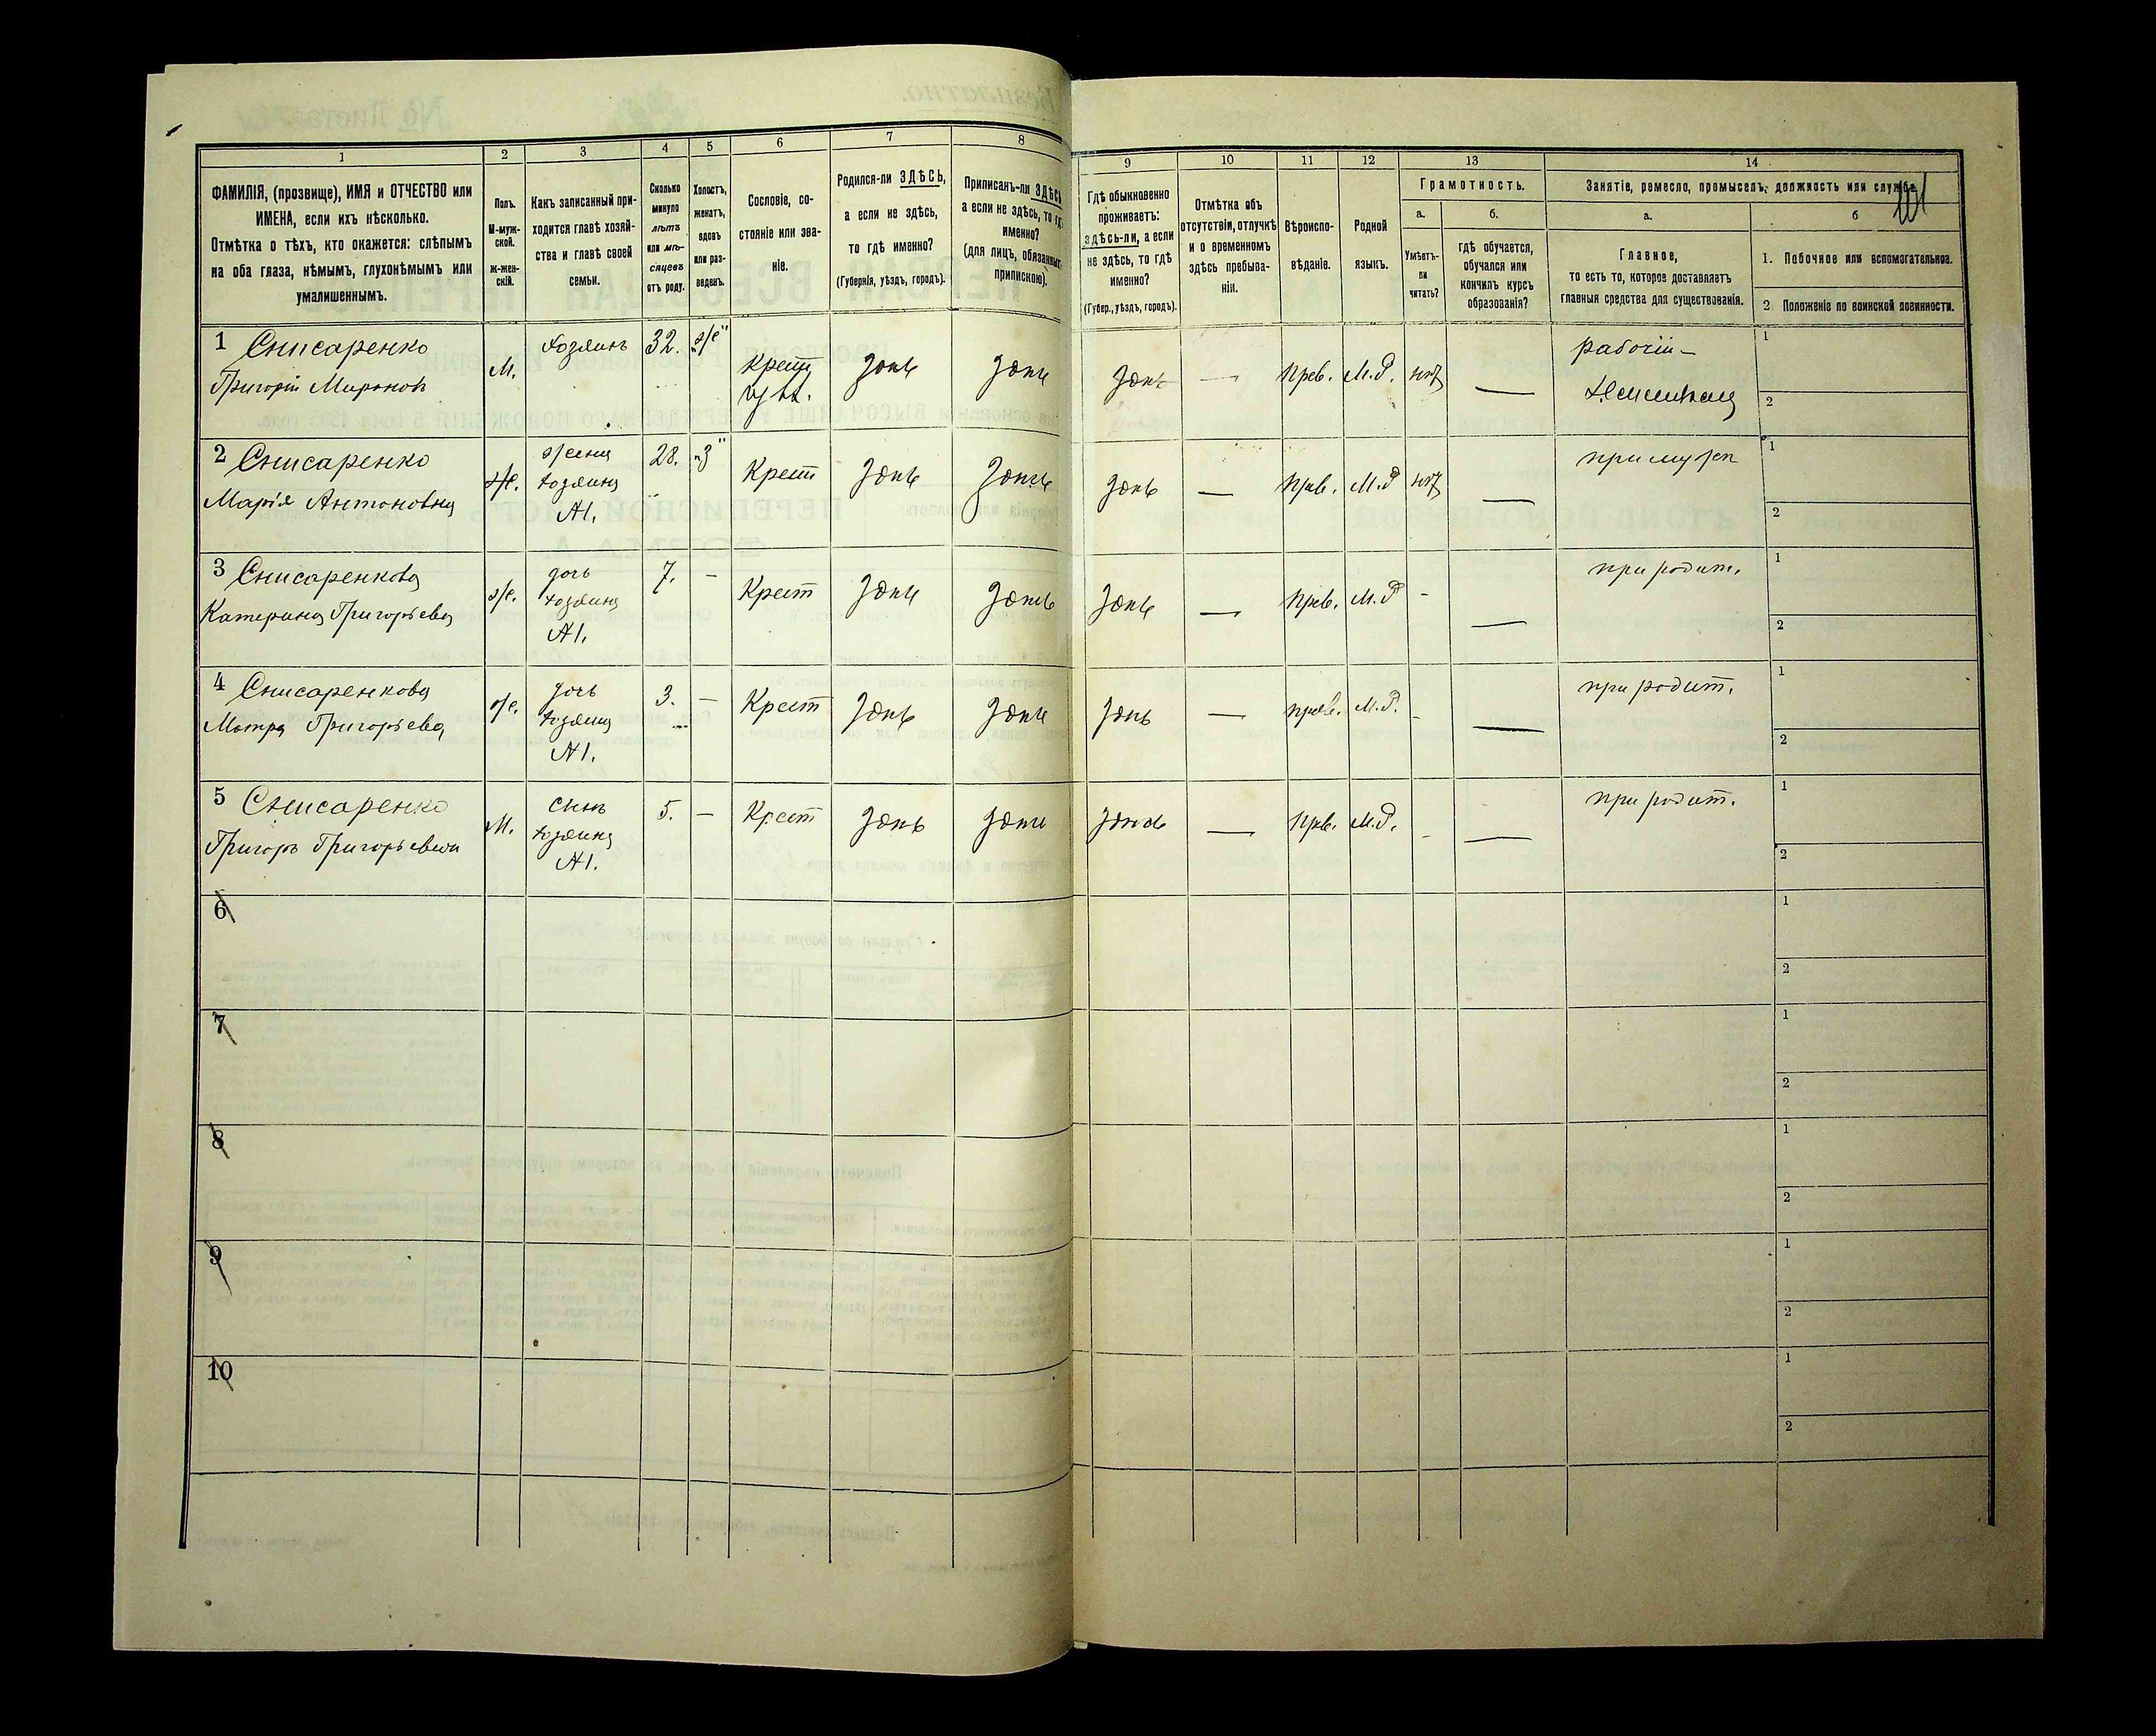 1 2 3 4 5 6 7 8
ФАМИЛІЯ, (прозвище), ИМЯ и ОТЧЕСТВО или
ИМЕНА, если ихъ нѣсколько.
Отмѣтка о тѣхъ, кто окажется: слѣпымъ
на оба глаза, нѣмымъ, глухонѣмымъ или
умалишеннымъ.
Полъ.
М-муж-
ской.
ж-жен-
скій.
Какъ записанный при-
ходится главѣ хозяй-
ства и главѣ своей
семьи.
Сколько
минуло
лѣтъ
или мѣ-
сяцевъ
отъ роду.
Холостъ,
женатъ,
вдовъ
или раз-
веденъ.
Сословіе, со-
стояніе или зва-
ніе.
Родился-ли ЗДѢСЬ,
а если не здѣсь,
то гдѣ именно?
(Губернія, уѣздъ, городъ).
Приписанъ-ли ЗДѢСЬ
а если не здѣсь, то гдѣ
именно?
(для лицъ, обязанныхъ
припискою).
1 Снисаренко
Григорій Мироновъ
М.
хозяинъ
32.
Крест
здѣсь
здѣсь
2 Снисаренко
Марія Антоновна
ж.
жена
хозяина
№1.
28.
"З"
Крест
здѣсь
здѣсь
3 Снисаренкова
Катерина Григорьева
ж.
дочь
хозяина
№1.
7.
—
Крест
здѣсь
здѣсь
4 Снисаренкова
Григорьева
ж.
дочь
хозяина
№1.
3.
—
Крест
здѣсь
здѣсь
5 Снисаренко
Григоръ Григорьевъ
М.
сынъ
хозяина
№1.
5.
—
Крест
здѣсь
здѣсь
6
7
8
9
10
9 10 11 12 13 14
Гдѣ обыкновенно
проживаетъ:
здѣсь-ли, а если
не здѣсь, то гдѣ
именно?
(Губер., уѣздъ, городъ).
Отмѣтка объ
отсутствіи, отлучкѣ
и о временномъ
здѣсь пребыва-
ніи.
Вѣроиспо-
вѣданіе.
Родной
языкъ.
Грамотность.
а.
Умѣетъ-
ли
читать?
б.
гдѣ обучается,
обучался или
кончилъ курсъ
образованія?
Занятіе, ремесло, промыселъ, должность или служба.
а.
Главное,
то есть то, которое доставляетъ
главныя средства для существованія.
б
1. Побочное или вспомогательное.
2 Положеніе по воинской повинности.
здѣсь — Прав. М.Р. нѣт —
рабочій –
1
2
здѣсь — Прав. М.Р нѣт —
при мужѣ
1
2
здѣсь — Прав. М.Р - —
при родит.
1
2
здѣсь — прав. М.Р. - —
при родит.
1
2
здѣсь — Прав. М.Р. - —
при родит.
1
2
1
2
1
2
1
2
1
2
1
2